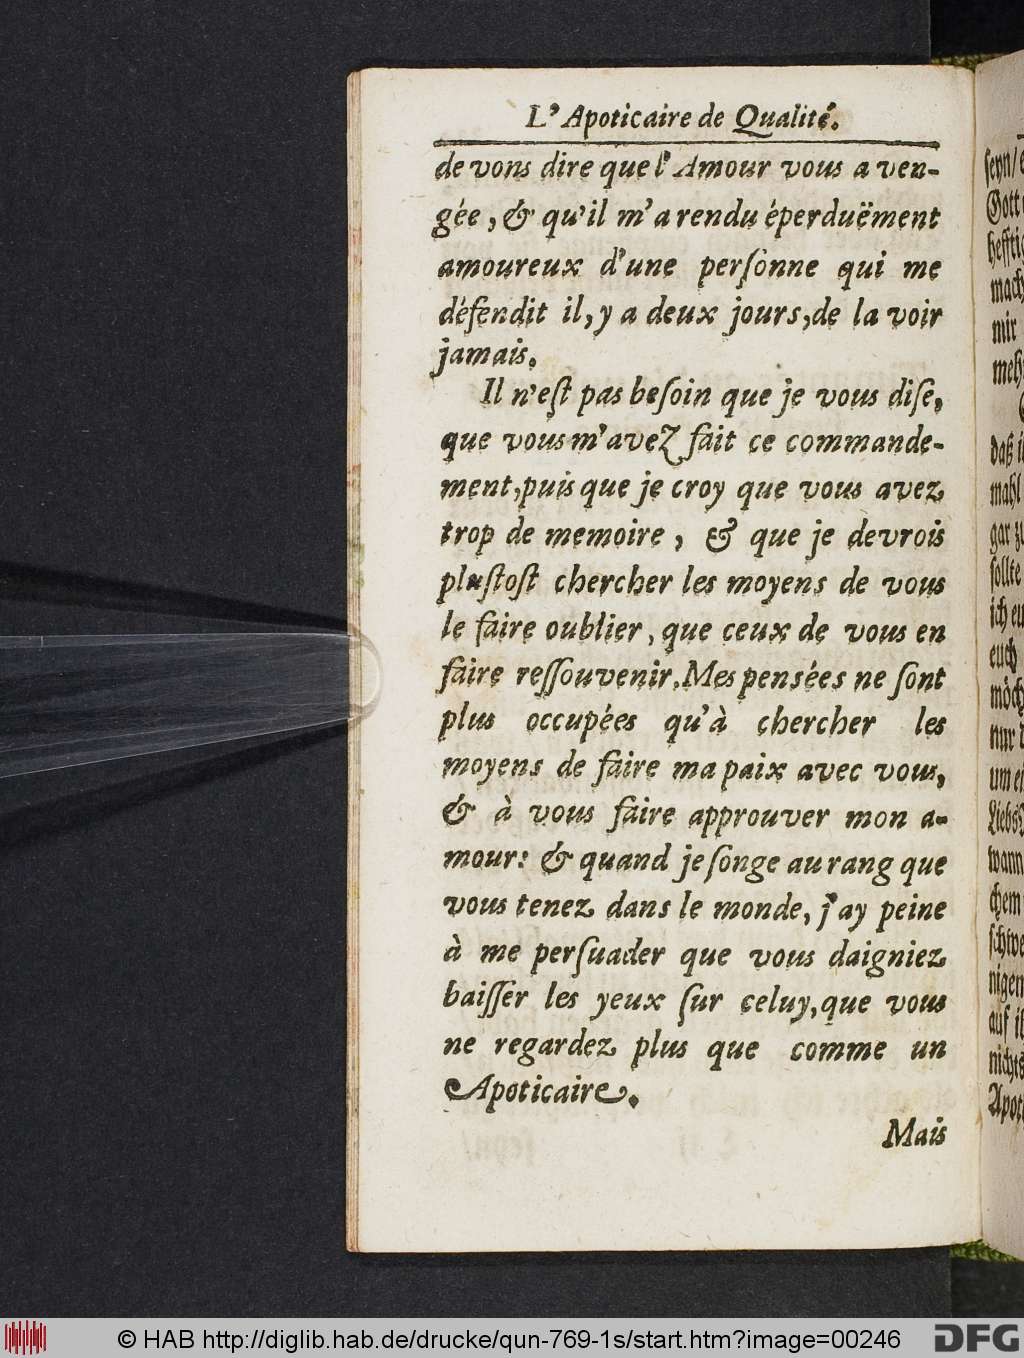 L'Apoticaire de Qualité.
de vons dire que l'Amour vous a ven-
gée, & qu'il m'a rendu éperduëment
amoureux d'une perſonne qui me
défendit il, y a deux jours, de la voir
jamais.
Il n'eſt pas beſoin que je vous diſe,
que vous m'avez fait ce commande-
ment, puis que je croy que vous avez
trop de memoire, & que je devrois
pluſtoſt chercher les moyens de vous
le faire oublier, que ceux de vous en
faire reſſouvenir. Mes pensées ne ſont
plus occupées qu'à chercher les
moyens de faire ma paix avec vous,
& à vous faire approuver mon a-
mour: & quand je ſonge au rang que
vous tenez dans le monde, j'ay peine
à me perſuader que vous daigniez
baiſſer les yeux ſur celuy, que vous
ne regardez plus que comme un
Apoticaire.
Mais
ſeyn/
Gott
hefftig
mach
mir
meh
daß i
mahl
gar zu
ſollte
ich eu
euch
möch
nur
um ei
Liebs
wann
chem
ſchwe
nigen
auf ih
nichts
Apot
© HAB http://diglib.hab.de/drucke/qun-769-1s/start.htm?image=00246
DFG